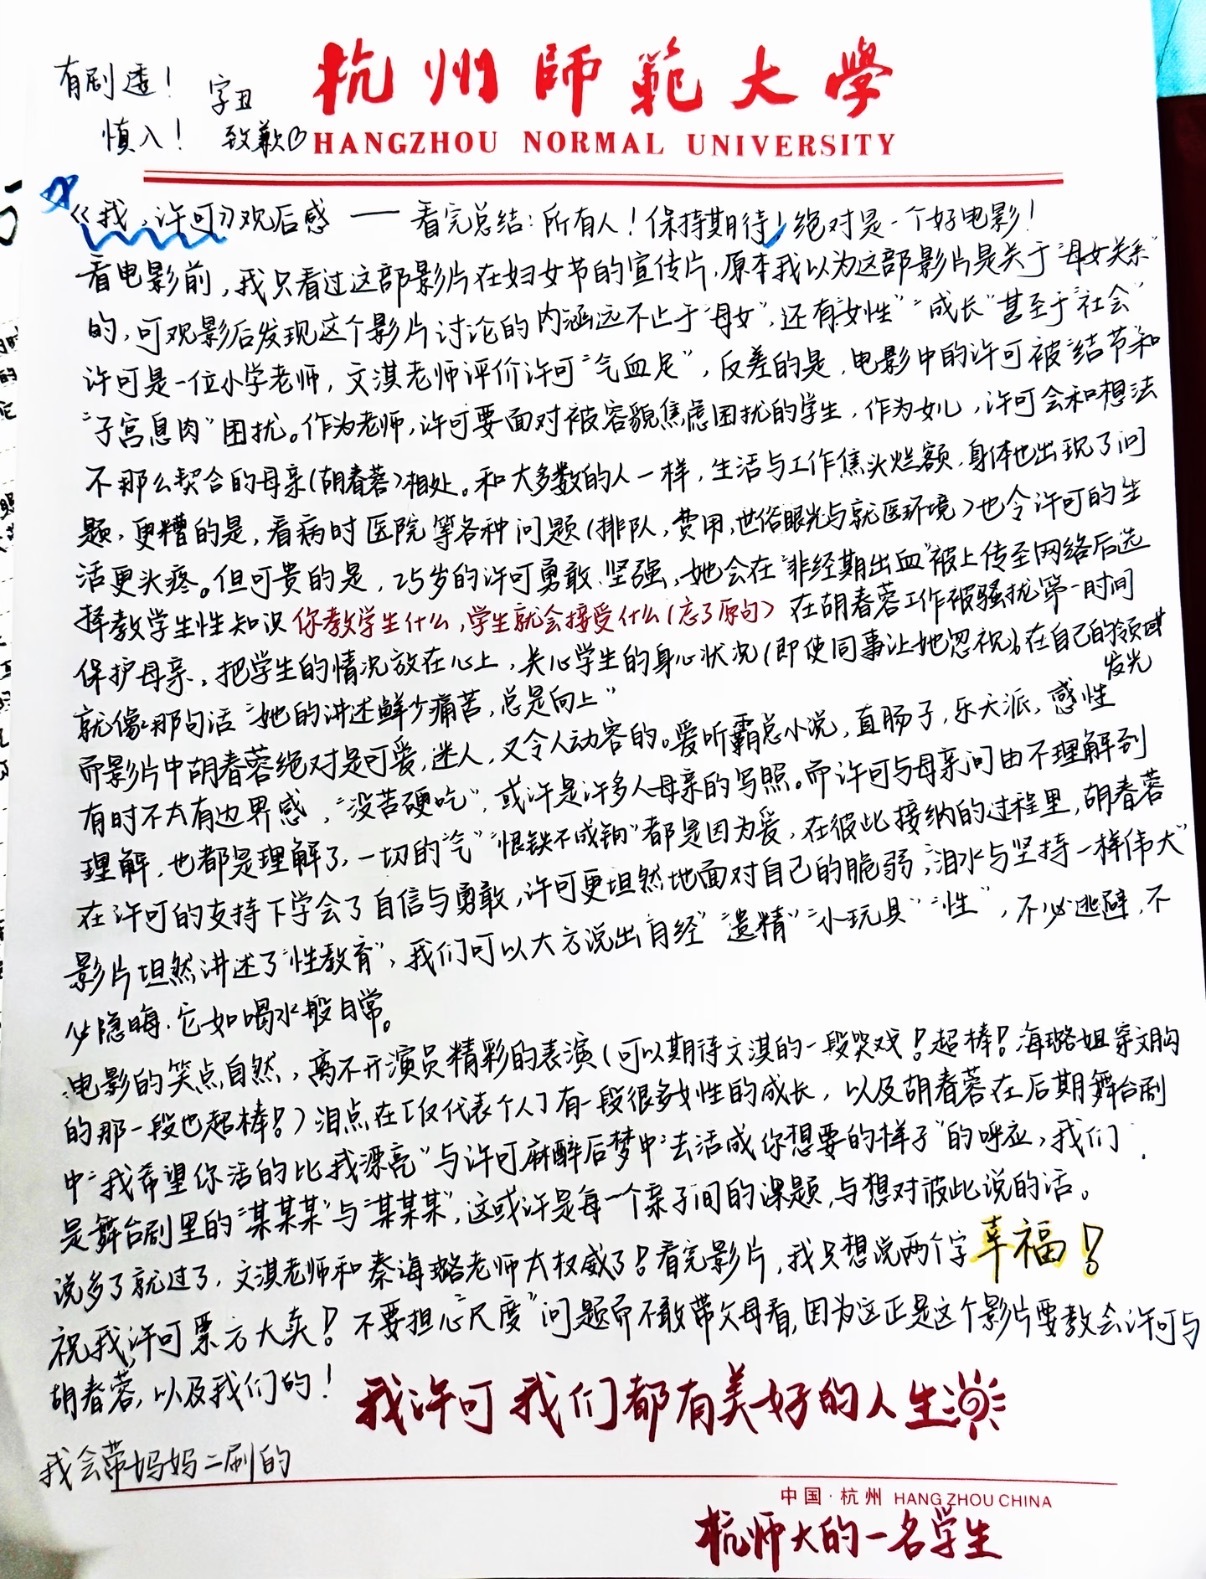 有剧透！ 字丑
慎入！ 致歉♡
杭州師範大學
HANGZHOU NORMAL UNIVERSITY
《我，许可》观后感 —— 看完总结：所有人！保持期待！绝对是一个好电影！
看电影前，我只看过这部影片在妇女节的宣传片，原本我以为这部影片是关于"母女关系"
的，可观影后发现这个影片讨论的内涵远不止于"母女"，还有"女性""成长"甚至于"社会"
许可是一位小学老师，文淇老师评价许可"气血足"，反差的是，电影中的许可被"结节"和
"子宫息肉"困扰。作为老师，许可要面对被容貌焦虑困扰的学生，作为女儿，许可会和想法
不那么契合的母亲（胡春蓉）相处。和大多数的人一样，生活与工作焦头烂额，身体也出现了问
题，更糟的是，看病时医院等各种问题（排队，费用，世俗眼光与就医环境）也令许可的生
活更头疼。但可贵的是，25岁的许可勇敢、坚强，她会在"非经期出血"被上传至网络后选
择教学生性知识 你教学生什么，学生就会接受什么（忘了原句） 在胡春蓉工作被骚扰第一时间
保护母亲，把学生的情况放在心上，关心学生的身心状况（即使同事让她忽视）在自己的领域
发光
就像那句话"她的讲述鲜少痛苦，总是向上"
而影片中胡春蓉绝对是可爱，迷人，又令人动容的。爱听霸总小说，直肠子，乐天派，感性
有时不太有边界感，"没苦硬吃"，或许是许多人母亲的写照。而许可与母亲间由不理解到
理解，也都是理解了，一切的"气""恨铁不成钢"都是因为爱，在彼此接纳的过程里，胡春蓉
在许可的支持下学会了自信与勇敢，许可更坦然地面对自己的脆弱；"泪水与坚持一样伟大"
影片坦然讲述了"性教育"，我们可以大方说出"月经""遗精""小玩具""性"，不必逃避，不
必隐晦，它如喝水般日常。
电影的笑点自然，离不开演员精彩的表演（可以期待文淇的一段哭戏！超棒！海璐姐穿文胸
的那一段也超棒！）泪点在[仅代表个人]有一段很多女性的成长，以及胡春蓉在后期舞台剧
中"我希望你活的比我漂亮"与许可麻醉后梦中"去活成你想要的样子"的呼应，我们
是舞台剧里的"某某某"与"某某某"，这或许是每一个亲子间的课题，与想对彼此说的话。
说多了就过了，文淇老师和秦海璐老师太权威了！看完影片，我只想说两个字 幸福！
祝我，许可票房大卖！不要担心"尺度"问题而不敢带父母看，因为这正是这个影片要教会许可与
胡春蓉，以及我们的！
我许可 我们都有美好的人生
我会带妈妈二刷的
中国·杭州 HANG ZHOU CHINA
杭师大的一名学生